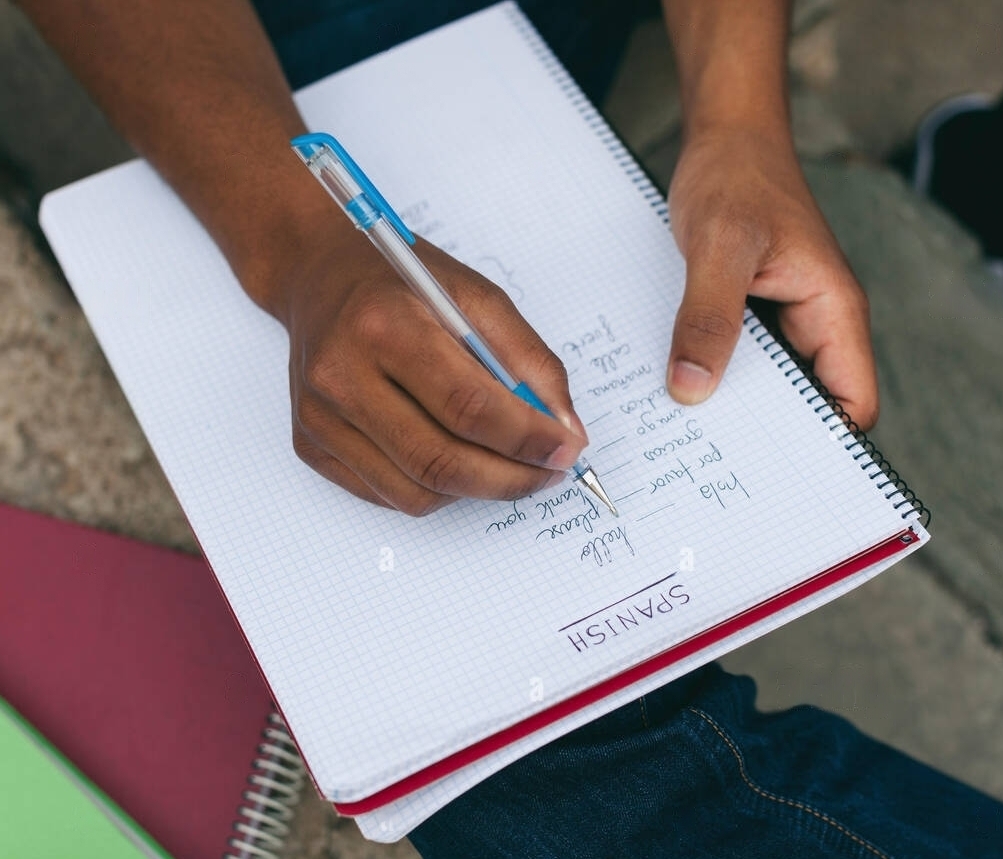 SPANISH
hola — hello
por favor — please
gracias — thank you
amigo —
adios —
mañana —
calle —